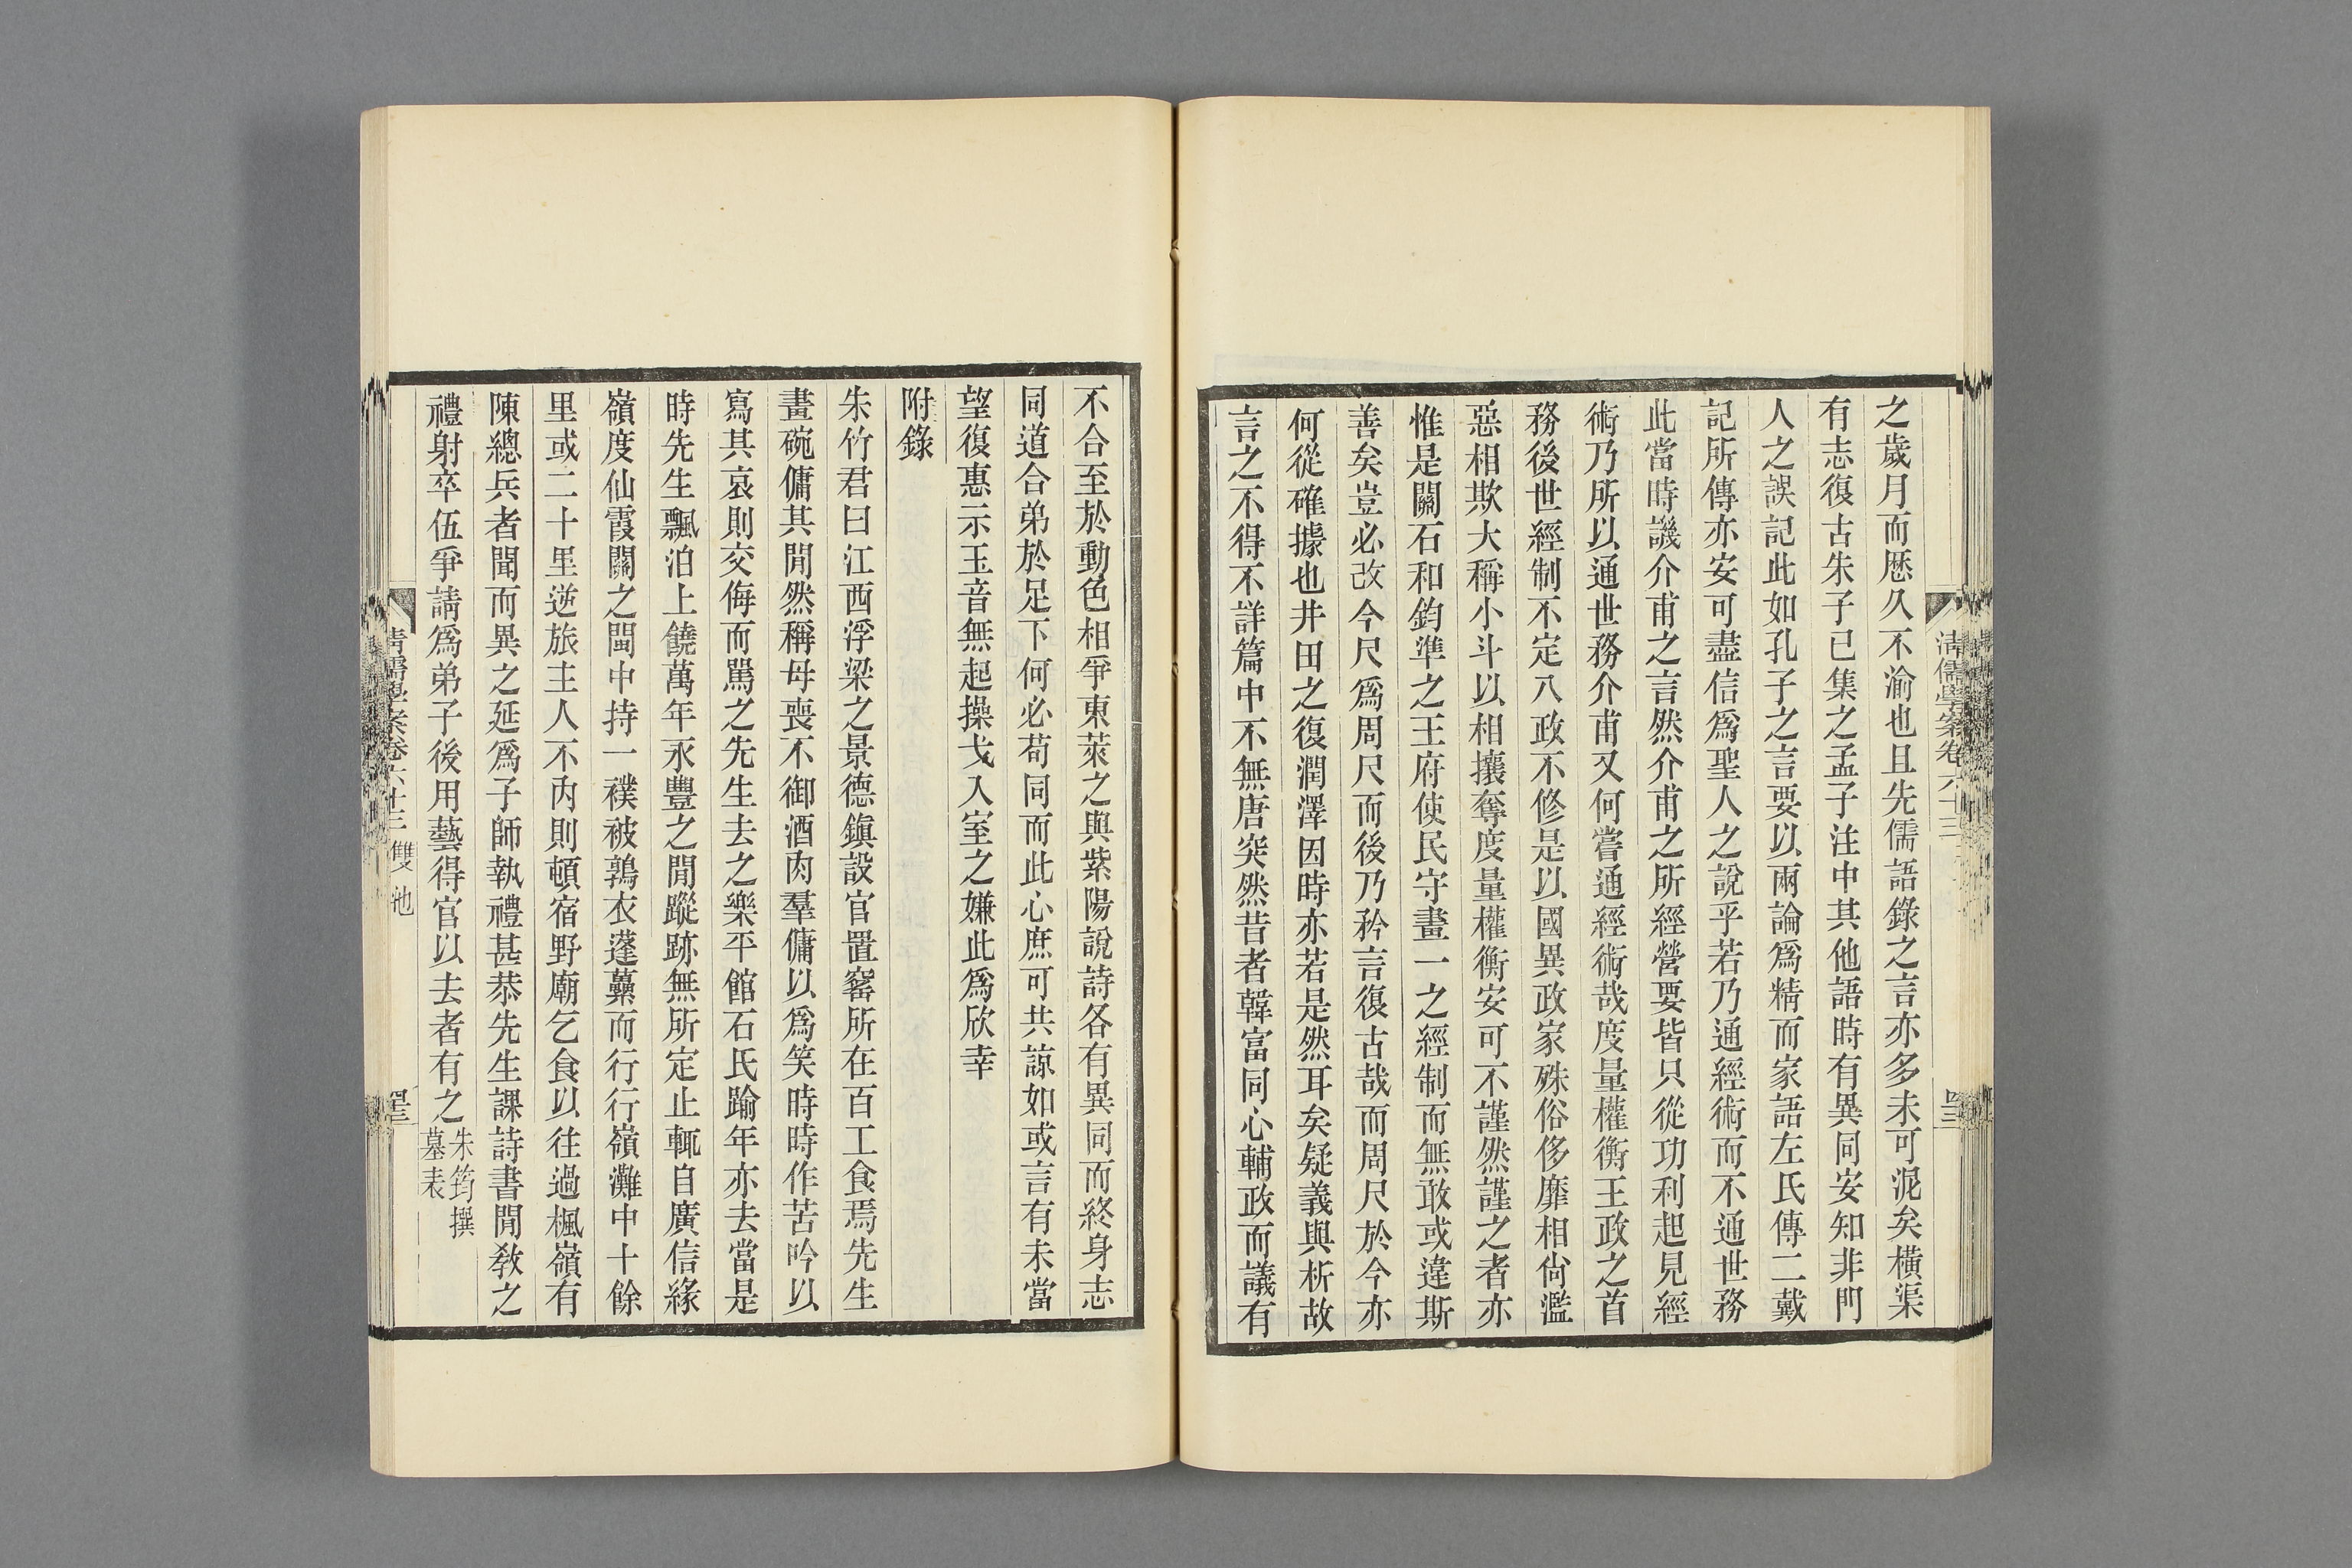 之歲月而歷久不渝也且先儒語錄之言亦多未可泥矣橫渠
有志復古朱子已集之孟子注中其他語時有異同安知非門
人之誤記此如孔子之言要以兩論爲精而家語左氏傳二戴
記所傳亦安可盡信爲聖人之說乎若乃通經術而不通世務
此當時譏介甫之言然介甫之所經營要皆只從功利起見經
術乃所以通世務介甫又何嘗通經術哉度量權衡王政之首
務後世經制不定八政不修是以國異政家殊俗侈靡相尙濫
惡相欺大稱小斗以相攘奪度量權衡安可不謹然謹之者亦
惟是關石和鈞準之王府使民守畫一之經制而無敢或違斯
善矣豈必改今尺爲周尺而後乃矜言復古哉而周尺於今亦
何從確據也井田之復潤澤因時亦若是然耳矣疑義與析故
言之不得不詳篇中不無唐突然昔者韓富同心輔政而議有
清儒學案卷六十三
不合至於動色相爭東萊之與紫陽說詩各有異同而終身志
同道合弟於足下何必苟同而此心庶可共諒如或言有未當
望復惠示玉音無起操戈入室之嫌此爲欣幸
附錄
朱竹君曰江西浮梁之景德鎭設官置窰所在百工食焉先生
畫碗傭其閒然稱母喪不御酒肉羣傭以爲笑時時作苦吟以
寫其哀則交侮而罵之先生去之樂平館石氏踰年亦去當是
時先生飄泊上饒萬年永豐之閒蹤跡無所定止輒自廣信緣
嶺度仙霞關之閩中持一襆被鶉衣蓬藁而行行嶺灘中十餘
里或二十里逆旅主人不內則頓宿野廟乞食以往過楓嶺有
陳總兵者聞而異之延爲子師執禮甚恭先生課詩書閒敎之
禮射卒伍爭請爲弟子後用藝得官以去者有之朱筠撰
墓表
清儒學案卷六十三 雙池